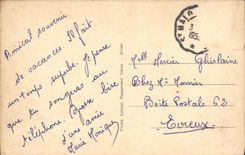 Amical souvenir
de vacances. Il fait
un temps superbe. Je pense
que tu songeras au
téléphone. Bonne bise
d'une amie
Marie Monique
Mell Mercier Ghislaine
Chez Mr Monnier
Boite Postale 62
Evreux